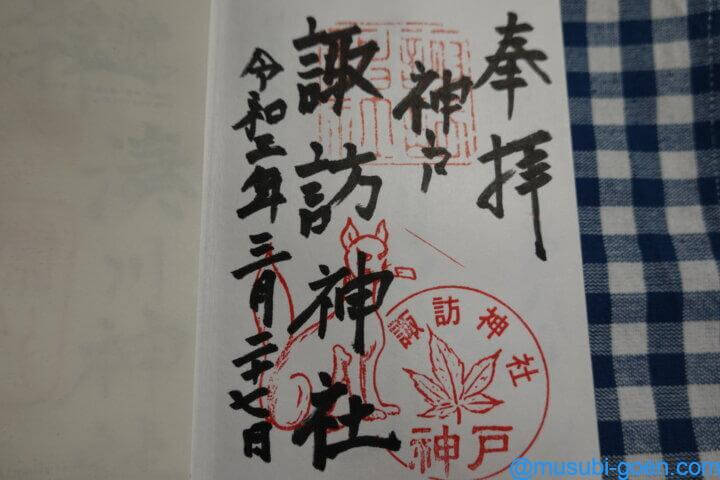 奉拝
神戸
諏訪神社
令和三年三月二十七日
諏訪神社
神戸
@musubi-goen.com